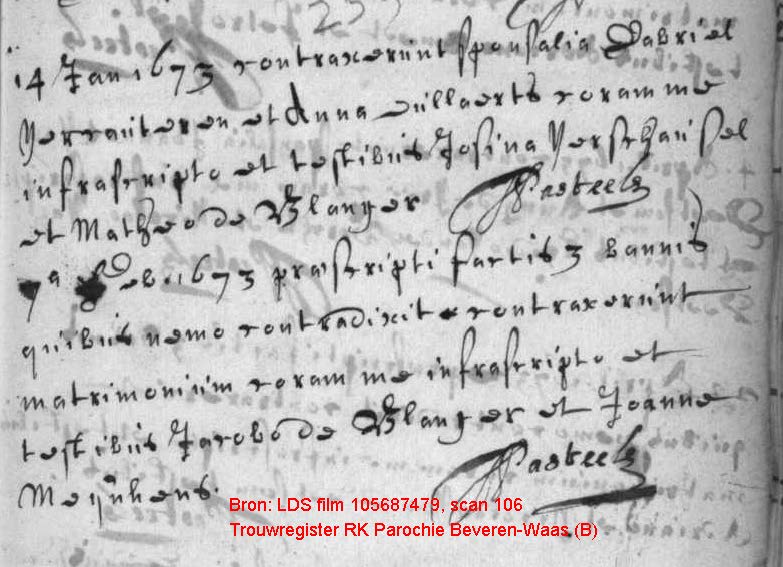 14 Jan 1673 contraxerunt sponsalia Gabriel
Verrauteren et Anna Cuillaerts coram me
infrascripto et testibus Josina Verschausel
et Matheo de Clanger JPasteels
7a Feb. 1673 praescripti factis 3 bannis
quibus nemo contradixit contraxerunt
matrimonium coram me infrascripto et
testibus Jacobo de Clanger et Joanne
Meynhens. JPasteels
Bron: LDS film 105687479, scan 106
Trouwregister RK Parochie Beveren-Waas (B)